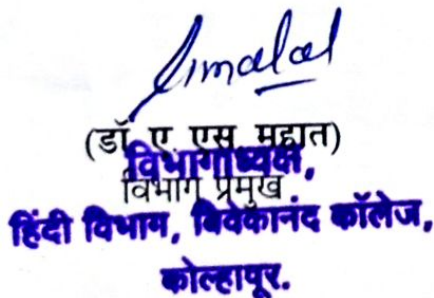 (डॉ ए एस महात)
विभागाध्यक्ष,
विभाग प्रमुख
हिंदी विभाग, विवेकानंद कॉलेज,
कोल्हापूर.